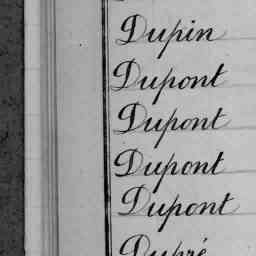 Dupin
Dupont
Dupont
Dupont
Dupont
Dupré